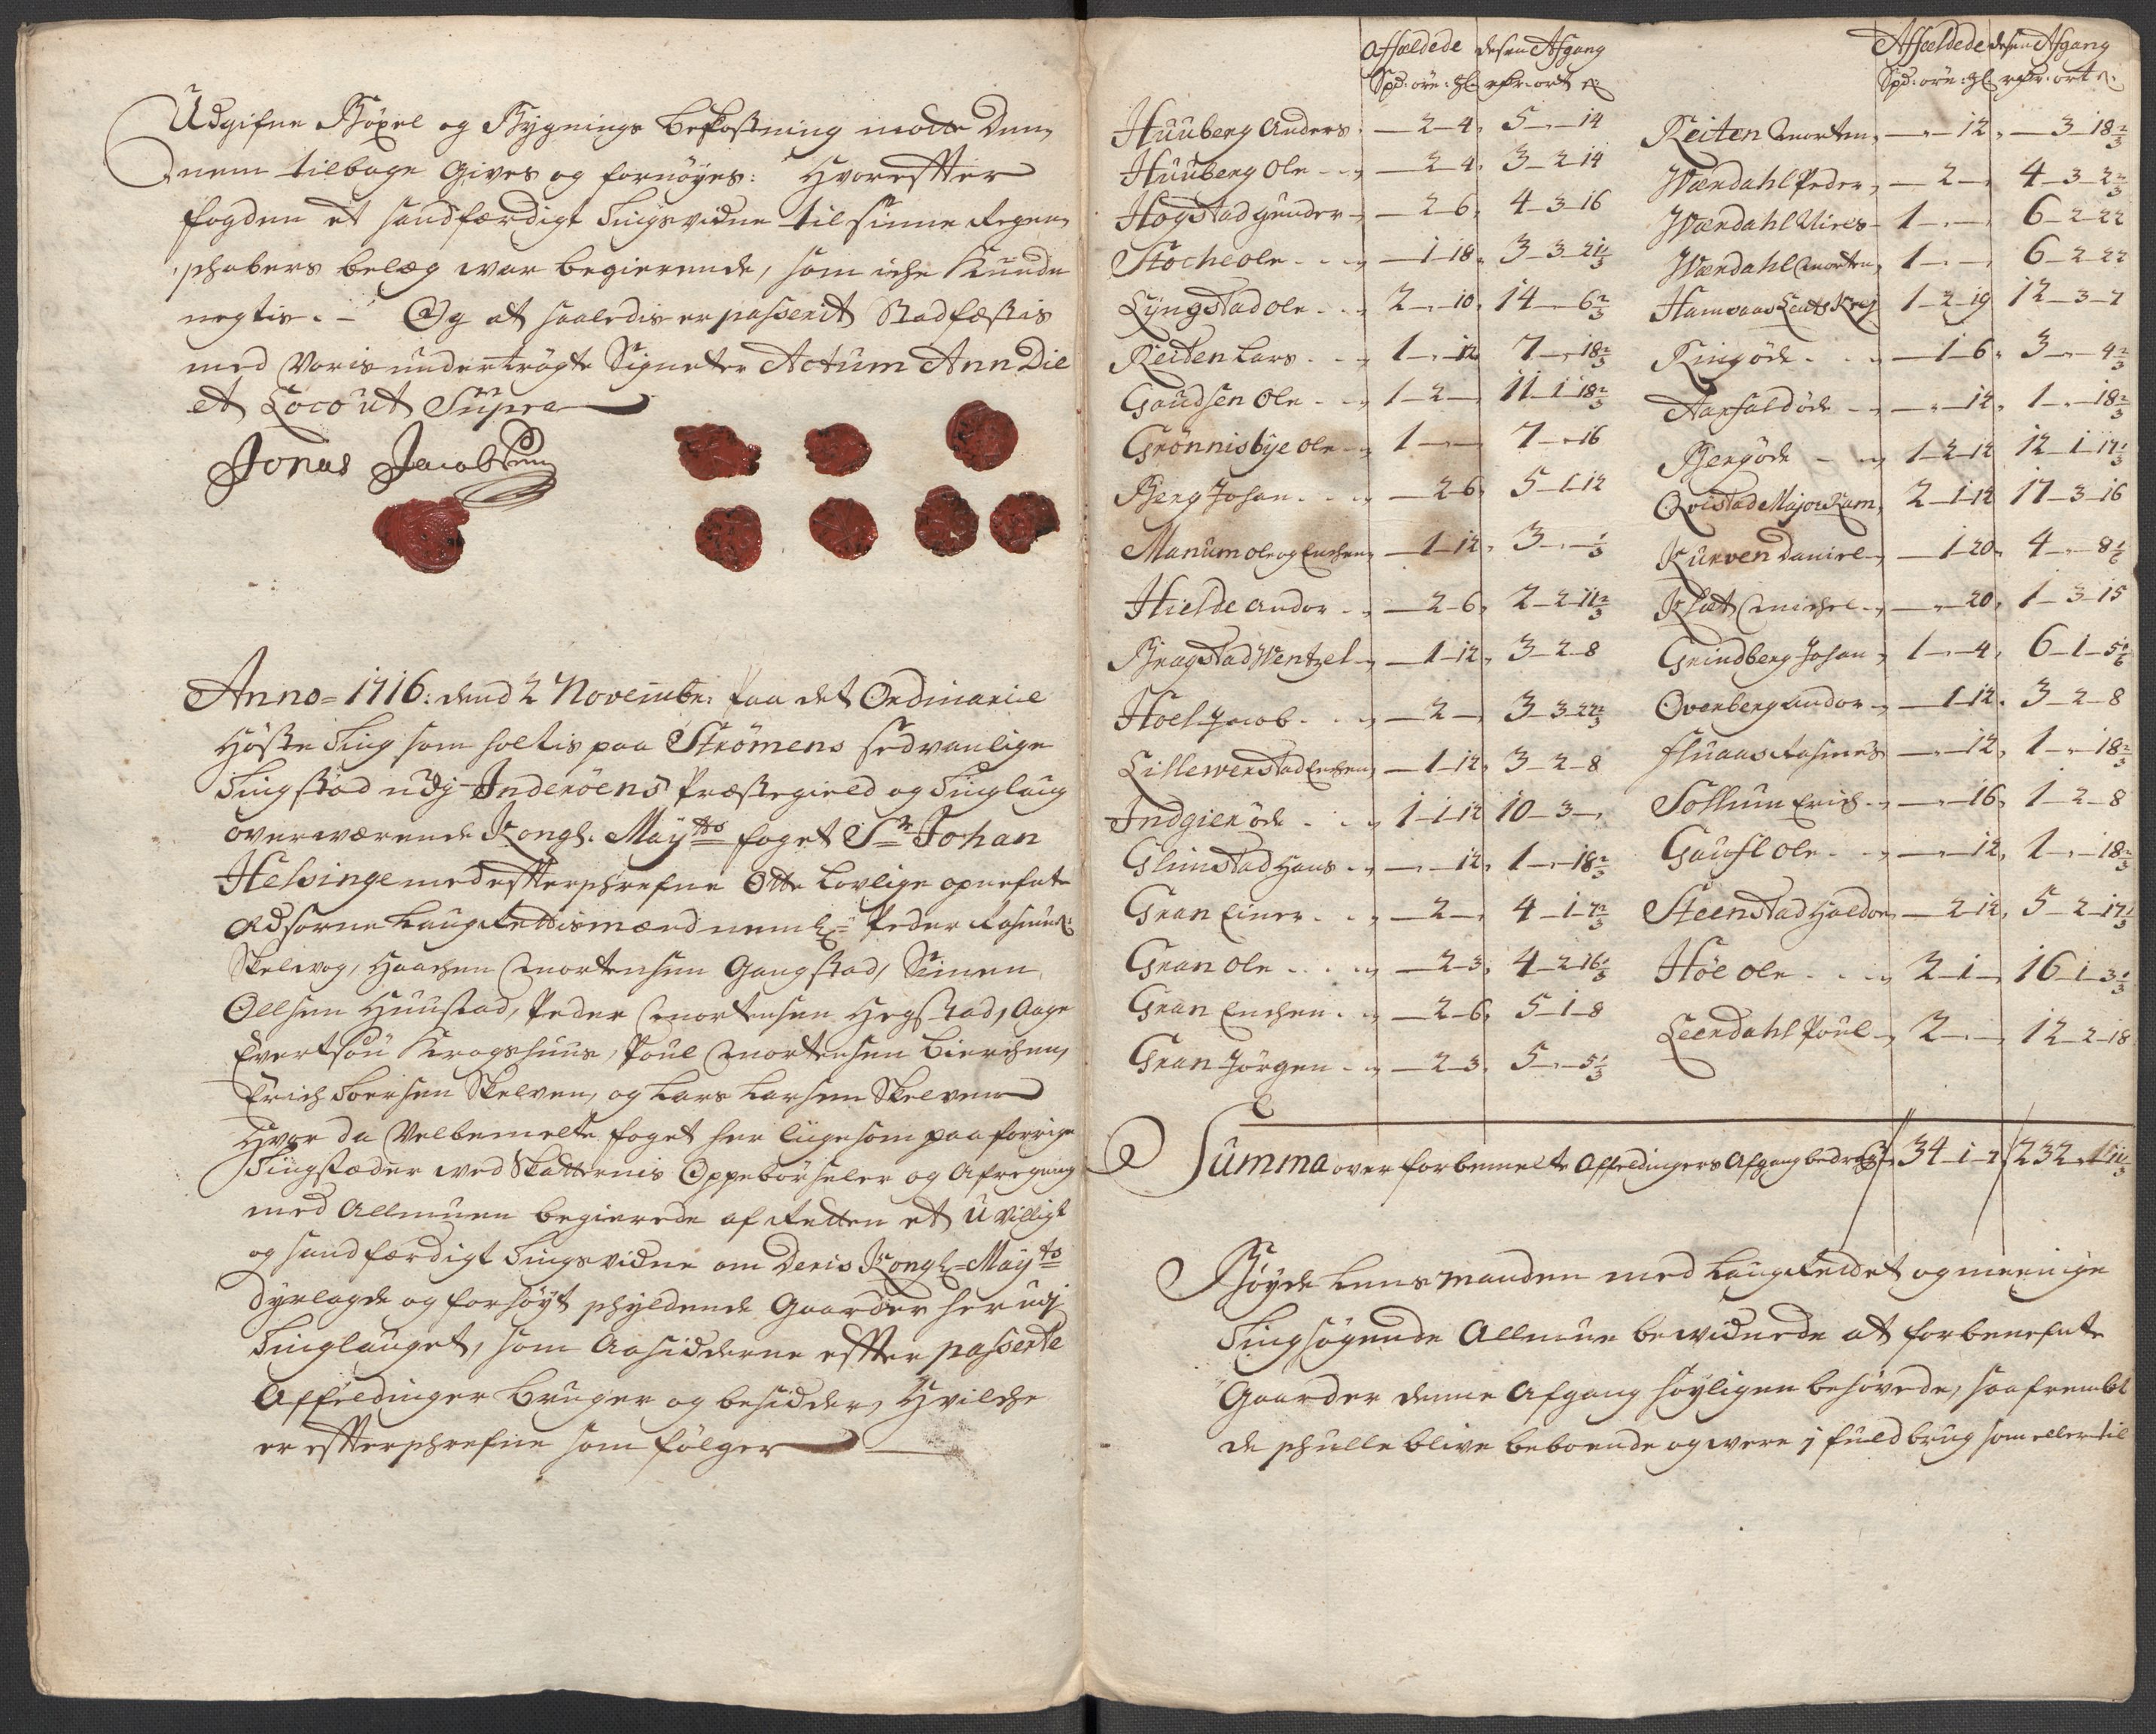 Udgifne Böxel og Bygnings bekostning motte Dem,
nem tilbage Gives og fornöyes: Hvoreffter
fogden et sandfærdigt Tingsvidne til sinne Regen,
schabers belæg war begierende, som iche Kunde
negtis. Og at saaledis er passerit Stadfæstis
med Voris undertrögte Signeter Actum Ann Die
et Loco ut Supra
Jonas Jacobsen
Anno = 1716: dend 2 Novembr: paa det Ordinarie
Höste Ting som holtis paa Strömens sedvanlige
Tingstad udj Inderöens Præstegield og Tinglaug
overwærende Kongl: Maytts foget Sr Johan
Helsinge med effterschrefne Otte Lovlige opnefnte
Adsorne Laug Rettismænd nembl: Peder Rasmus:
Skelvog, Haachen Mortensen Gangstad, Simen
Ollsen Huustad, Peder Mortensen Hegstad, Aage
Evertsöü Kragshuus, Poul Mortensen Bierchen,
Erich Toersen Skelven, og Lars Larsen Skelven
Hvor da Velbemelte foget her liigesom paa forrige
Tingstæder wed Skatternis Oppebörseler og Afregning
med Allmuen begierede af Retten et uvilligt
og sandfærdigt Tingsvidne om Deris Kongl: Mayts
dyrlagde og forhöyt schyldende Gaarder her udj
Tinglauget, som Aasidderne effter passerte
Affeldinger bruger og besidder, Hvilche
er effterschrefne som fölger
Affældede desen Afgang
Spd: öre: gl: rdr: ort s:
Huuberg Anders — 2 – 4, 5 – „ – 14
Huuberg Ole — 2 – 4, 3 – 2 – 14
Hogstad Gunder — 2 – 6, 4 – 3 – 16
Stoche Ole — 1 – 18, 3 – 3 – 21 1/3
Lyngstad Ole 2 – „ – 10, 14 – „ – 6 2/3
Reiten Lars 1 – „ – 12 7 – „ – 18 2/3
Gaudsen Ole 1 – 2 – 11 – 1 – 18 2/3
Grönnisbye Ole 1 – „ – 7 – „ – 16
Berg Johan — 2 – 6, 5 – 1 – 12
Manum Ole og Enchen — 1 – 12, 3 – „ – 1/3
Hielde Andor — 2 – 6, 2 – 2 – 11 2/3
Bragstad Wentzel — 1 – 12, 3 – 2 – 8
Hoel Jacob — 2 – 3 – 3 – 22 2/3
Lillewerstad Enchen — 1 – 12, 3 – 2 – 8
Indgier öde 1 – 1 – 12 10 – 3 –
Glimstad Hans — „ – 12, 1 – „ – 18 2/3
Gran Einer — 2 – 4 – 1 – 7 2/3
Gran Ole — 2 – 3, 4 – 2 – 16 1/3
Gran Enchen — 2 – 6, 5 – 1 – 8
Gran Jörgen — 2 – 3, 5 – „ – 5 1/3
Affældede desen Afgang
Spd: öre: gl: rdr: ort s:
Reiten Morten — „ – 12, – 3 – 18 2/3
Wændahl Peder — 2 – 4 – 3 – 2 2/3
Wændahl Nires 1 – „ – 6 – 2 – 22
Wændahl Morten 1 – „ – 6 – 2 – 22
Hamraas 1 – 2 – 19 12 – 3 – 7
Ring öde — 1 – 6, 3 – „ – 4 2/3
Aarsald öde — „ – 12, 1 – „ – 18 2/3
Berg öde 1 – 2 – 12 12 – 1 – 17 1/3
Qvistad Major Ram, 2 – 1 – 12 17 – 3 – 16
Kurven Daniel — 1 – 20, 4 – „ – 8 1/6
Klæt Michel — „ – 20, 1 – 3 – 15
Grindberg Johan 1 – „ – 4, 6 – 1 – 5 5/6
Overberg Andor — 1 – 12, 3 – 2 – 8
Fluaas Rasmus — „ – 12, 1 – „ – 18 2/3
Sollum Erich — „ – 16, 1 – 2 – 8
Gaufl Ole — „ – 12, 1 – „ – 18 2/3
Steenstad Haldor — 2 – 12, 5 – 2 – 17 1/3
Höe Ole 2 – 1 – 16 – 1 – 3 1/3
Leendahl Poul 2 – „ – 12 – 2 – 18
Summa over forbemelte Affeldingers Afgang bedrager 34 – 1 – 7 232 „ 1 11 1/3
Böyde Lensmanden med Laug Rettet og meenige
Tingsögende Allmue bewidnede at forbenefnte
Gaarder denne Afgang höyligen behövede, saafremt
de schulle blive beboende og were i fuld brug som eller til